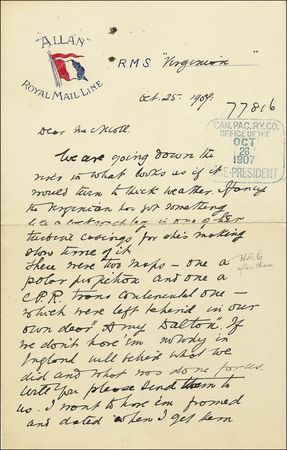 "ALLAN"
ROYAL MAIL LINE
RMS "Virginian"
Oct. 25. 1907.
77816
CAN. PAC. RY. CO.
OFFICE OF THE
OCT
26
1907
VICE-PRESIDENT
Dear McNicoll
We are going down the
river in what looks as if it
would turn to thick weather.
the Virginian has got something
like a in one of her
turbine casings for she's making
slow time of it
There were two maps – one a
polar projection and one a
C.P.R. trans continental one –
which were left behind in our
own dear "Dalton". If
we don't have 'em nobody in
England will believe what we
did and what was done for us.
Will you please send them to
us. I want to have 'em framed
and dated when I get them
after them